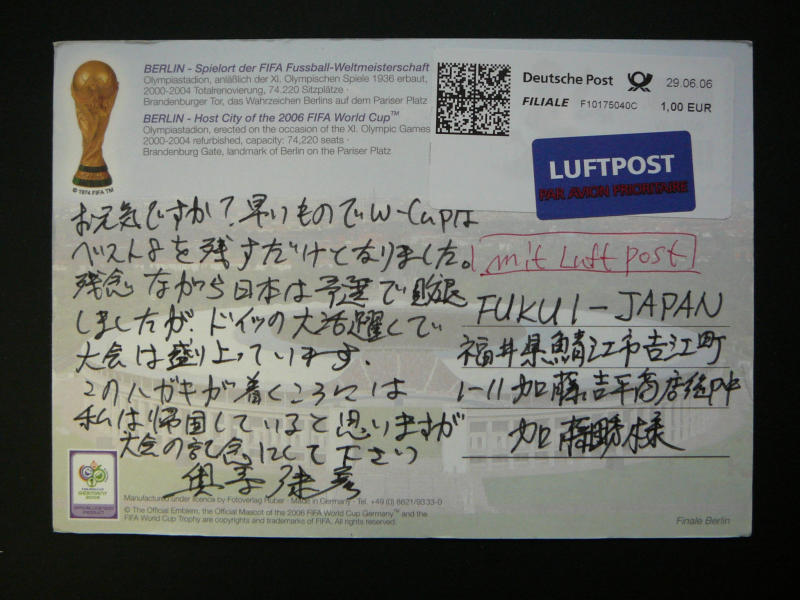 BERLIN - Spielort der FIFA Fussball-Weltmeisterschaft
Olympiastadion, anläßlich der XI. Olympischen Spiele 1936 erbaut,
2000-2004 Totalrenovierung, 74.220 Sitzplätze ·
Brandenburger Tor, das Wahrzeichen Berlins auf dem Pariser Platz
BERLIN - Host City of the 2006 FIFA World Cup™
Olympiastadion, erected on the occasion of the XI. Olympic Games
2000-2004 refurbished, capacity: 74,220 seats ·
Brandenburg Gate, landmark of Berlin on the Pariser Platz
© 1974 FIFA TM
Deutsche Post
29.06.06
FILIALE F10175040C 1,00 EUR
LUFTPOST
PAR AVION PRIORITAIRE
お元気ですか?早いものでW-Cupは
ベスト8を残すだけとなりました。
残念ながら日本は予選で敗退
しましたが、ドイツの大活躍で
大会は盛り上っています.
このハガキが着くころには
私は帰国していると思いますが
大会の記念にして下さい
mit Luftpost
FUKUI-JAPAN
福井県鯖江市吉江町
1-11 加藤吉平商店
加藤 様
FIFA WORLD CUP
GERMANY
2006
OFFICIAL LICENSED
PRODUCT
Manufactured under licence by Fotoverlag Huber · Made in Germany · Tel. +49 (0) 8821/9333-0
© The Official Emblem, the Official Mascot of the 2006 FIFA World Cup Germany™ and the
FIFA World Cup Trophy are copyrights and trademarks of FIFA. All rights reserved.
Finale Berlin